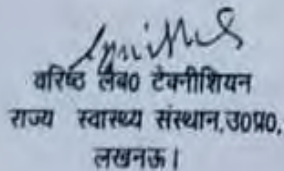 वरिष्ठ लैब0 टेक्नीशियन
राज्य स्वास्थ्य संस्थान,उ0प्र0,
लखनऊ।